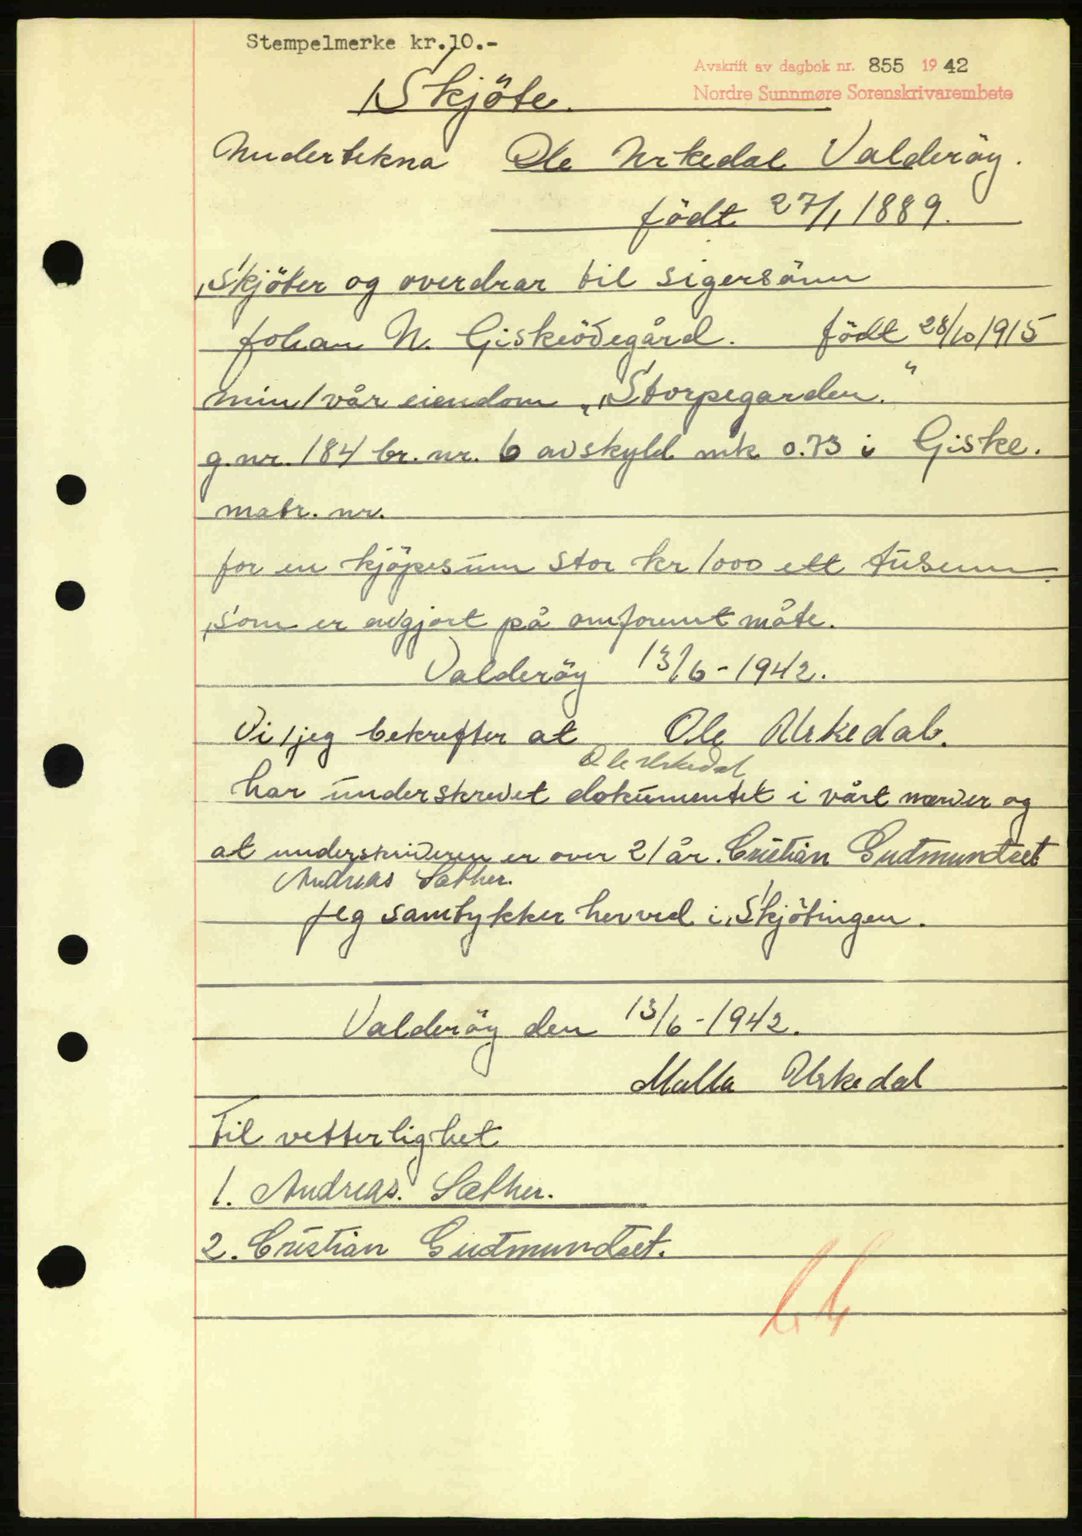 Stempelmerke kr.10.-
Avskrift av dagbok nr. 855 1942
Nordre Sunnmøre Sorenskrivarembete
Skjöte.
Undertekna Ole Urkedal Valderöy.
födt 27/1 1889.
Skjöter og overdrar til sigersönn
Johan N. Giskeödegård. födt 28/10 1915
min/vår eiendom „Storpegarden."
g.nr. 184 br. nr. 6 avskyld mk 0.73 i Giske.
matr. nr.
for en kjöpesum stor kr 1000 ett tusenn
som er avgjort på omforent måte.
Valderöy 13/6-1942.
Vi/jeg bekrefter at Ole Urkedal.
Ole Urkedal
har underskrevet dokumentet i vårt nærver og
at underskriveren er over 21 år. Cristian Gudmundset
Andreas Sæther.
Jeg samtykker herved i Skjötingen.
Valderöy den 13/6-1942.
Malla Urkedal
Til vetterlighet
1. Andreas. Sæther.
2. Cristian Gudmundset.